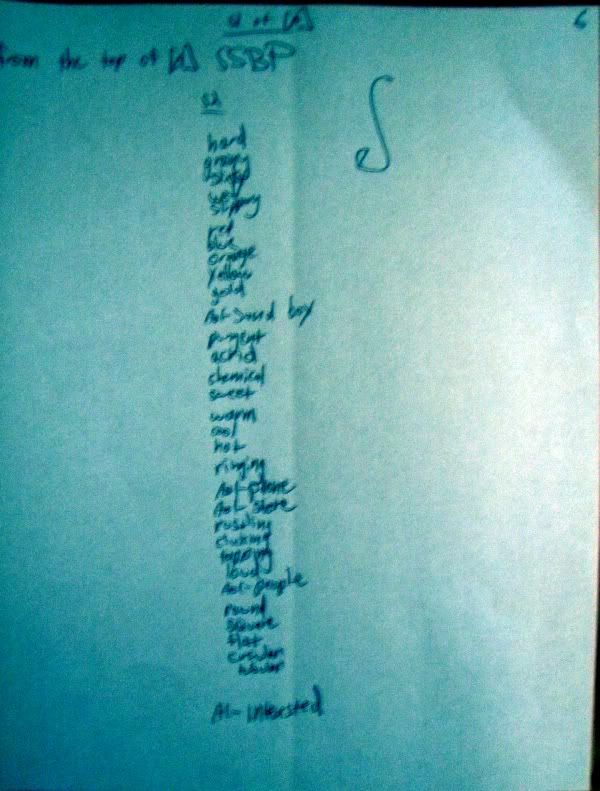 S2 of [A]
6
from the top of [A] SSBP
S2
hard
grainy
wet
slippery
red
blue
orange
yellow
gold
Aol-Sand box
pungent
acrid
chemical
sweet
warm
cool
hot
ringing
Aol-phone
Aol-Store
rustling
clicking
tapping
loud
Aol-people
round
square
flat
circular
tubular
AI-interested